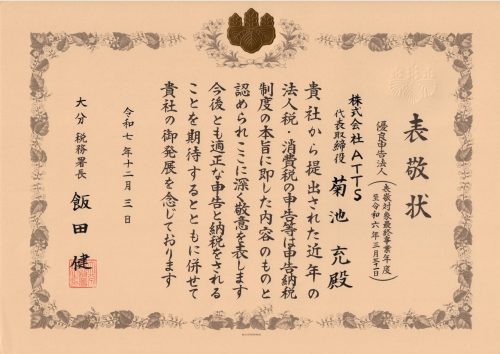 表敬状
優良申告法人
(表敬対象最終事業年度
至令和六年三月三十一日)
株式会社ATTS
代表取締役 菊池 充殿
貴社から提出された近年の
法人税・消費税の申告等は申告納税
制度の本旨に即した内容のものと
認められここに深く敬意を表します
今後とも適正な申告と納税をされる
ことを期待するとともに併せて
貴社の御発展を念じております
令和七年十二月三日
大分税務署長 飯田 健